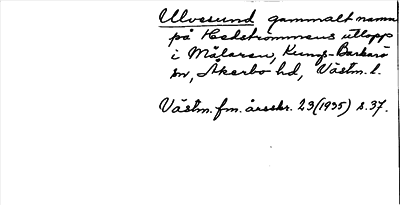 Ulvesund gammalt namn
på Hedströmmens utlopp
i Mälaren, Kungs-Barkarö
sn, Åkerbo hd, Västm. l.
Västm. fm. årsskr. 23 (1935) s. 37.